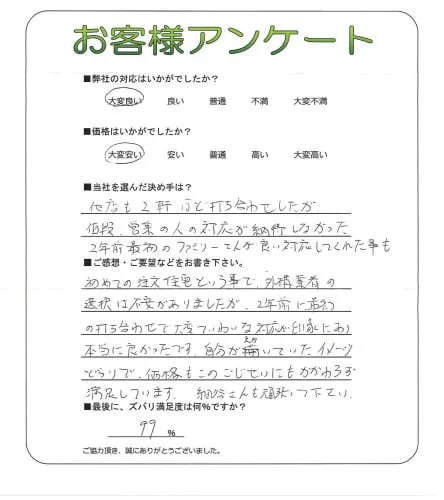 お客様アンケート
■弊社の対応はいかがでしたか？
大変良い 良い 普通 不満 大変不満
■価格はいかがでしたか？
大変安い 安い 普通 高い 大変高い
■当社を選んだ決め手は？
他店も2軒ほど打ち合わせしたが
値段、営業の人の対応が納得しなかった
2年前最初のファミリーさんが良い対応してくれた事も
■ご感想・ご要望などをお書き下さい。
初めての注文住宅という事で、外構業者の
選択は不安がありましたが、2年前に最初
の打ち合わせで大変ていねいな対応が印象にあり
本当に良かったです。自分が描いていたイメージ
どうりで、価格もこのごじせいにもかかわらず
満足しています。 さんも頑張って下さい。
■最後に、ズバリ満足度は何％ですか？
99 %
ご協力頂き、誠にありがとうございました。